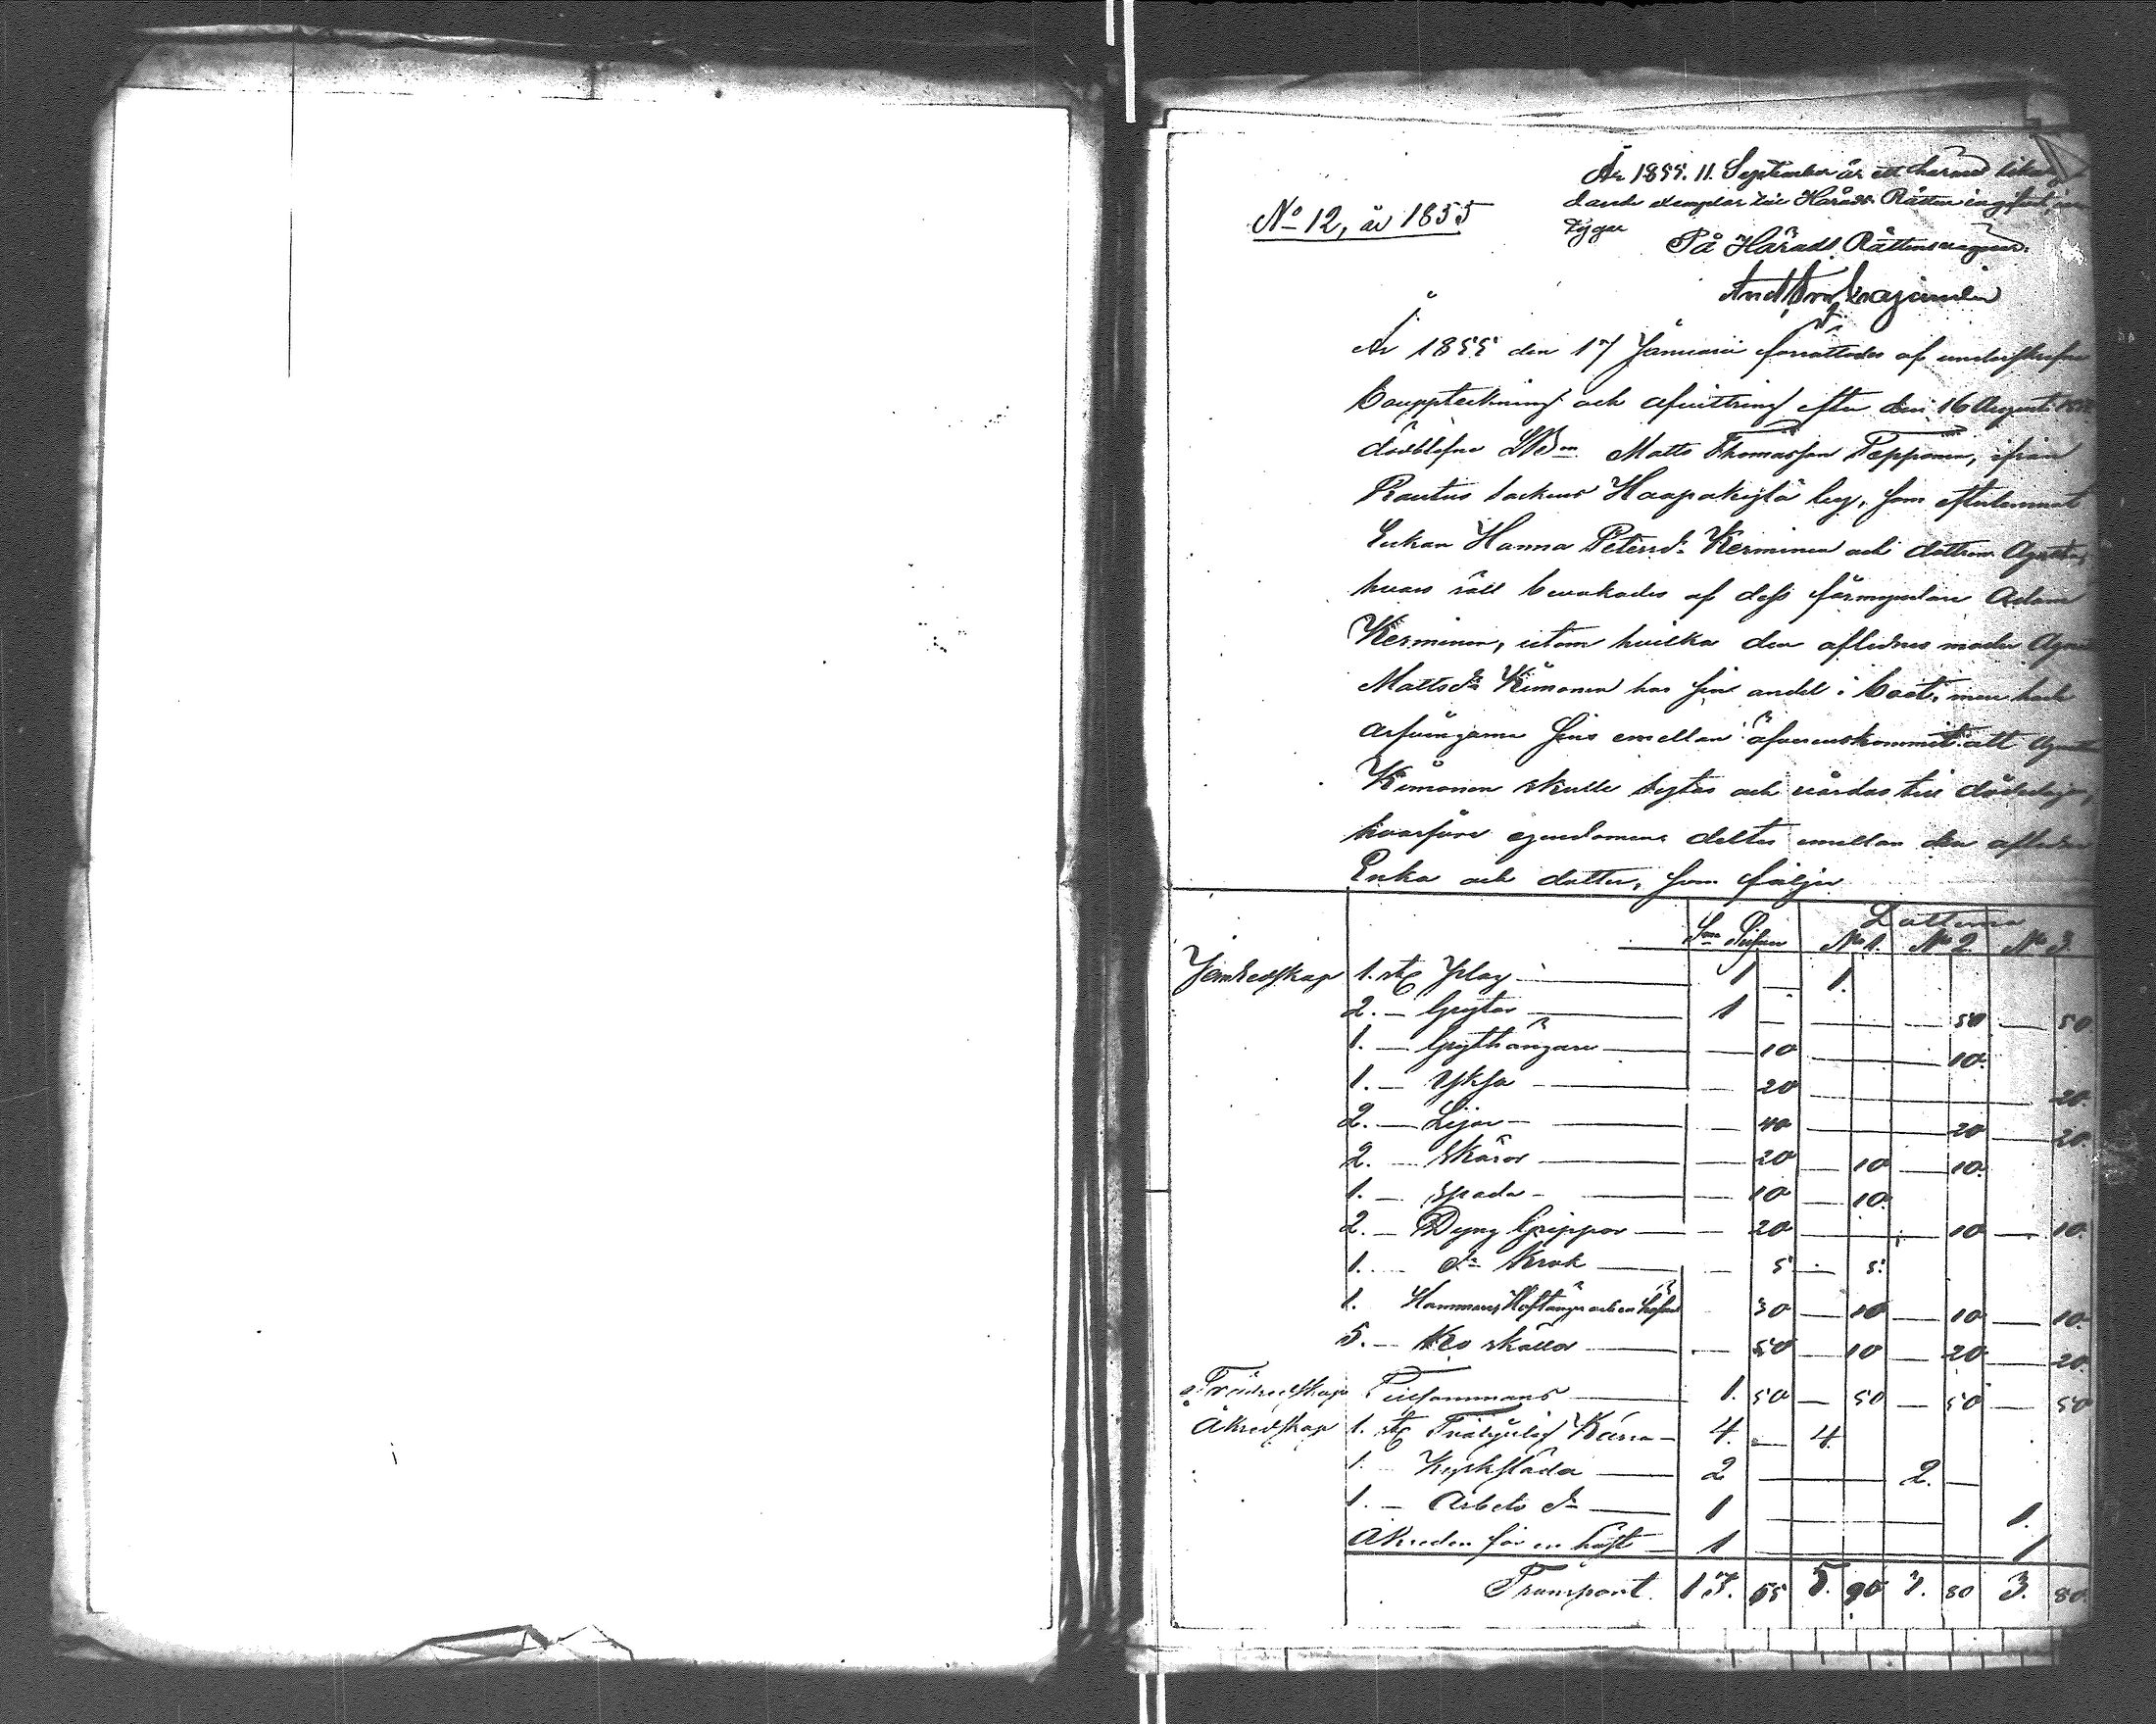 År 1855. 11. September är ett härmed liknu
dande exemplar till Härads Rätten ingifvet,
På Härads Rättens vägnar:
No 12, år 1855
År 1855 den 17 Januarii förrättades af underskrefne
Bouppteckning och afvittring efter den 16 Augusti
dödblefne LBdn Matts Thomasson Pepponen, ifrån
Rautus Sockens Haapakylä by, som efterlemnat
Enkan Hanna Petersdr Kerminen och dottren Agneta,
hvars rätt bevakades af dess förmyndare Adam
Kerminen, utom hvilka den aflednes moder Agneta
Mattsdr Kimonen har sin andel i boet; men hade
arfvingarne sins emellan öfverenskommit att Agneta
Kimonen skulle skytas och vårdas till dödedagar,
hvarföre egendomen deltes emellan den aflednes
Enka och dotter, som följer
Lotterne
Sma Pris No 1. No 2. No 3.
Jernredskap 1. st Plog — 1 — 1.
2. — Grytor — 1 — 50 — 50
1. — Grythängare — 10 — 10.
1. — Yksa — 20 — 20.
2. — Lijor — 40 — 20 — 20.
2. — Skäror — 20 — 10 — 10.
1. — Spada — 10 — 10.
2. — Dyng Grippor — 20 — 10 — 10.
1. — do Krok — 5 — 5.
1. Hammare, Hoftång 30 — 10 — 10 — 10.
5. — Ko skällor — 50 — 10 — 20 — 20.
Trädredskap Tillsammans — 1. 50 — 50 — 50 — 50
Åkredskap 1. st Tvåhjulig Kärra — 4. — 4.
1. — Kyrksläda — 2 — 2. —
1. — Arbets do — 1 — 1.
Åkreden för en häst — 1 — 1
Transport. 13. 55 5. 95 3. 80 3. 80.